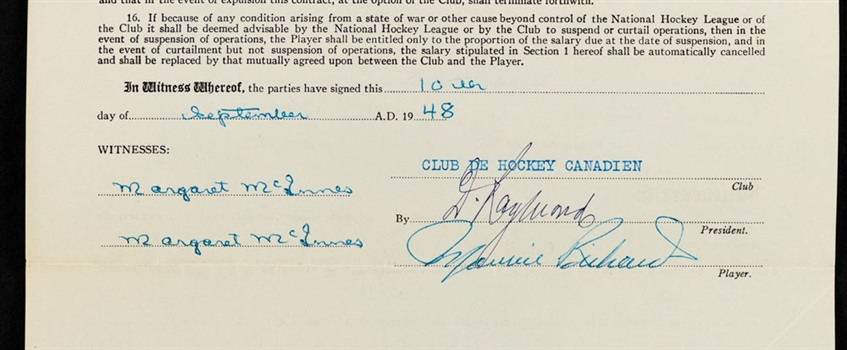 and that in the event of expansion this contract, at the option of the Club, shall terminate forthwith.
16. If because of any condition arising from a state of war or other cause beyond control of the National Hockey League or of
the Club it shall be deemed advisable by the National Hockey League or by the Club to suspend or curtail operations, then in the
event of suspension of operations, the Player shall be entitled only to the proportion of the salary due at the date of suspension, and in
the event of curtailment but not suspension of operations, the salary stipulated in Section 1 hereof shall be automatically cancelled
and shall be replaced by that mutually agreed upon between the Club and the Player.
In Witness Whereof, the parties have signed this 10
day of September A.D. 19 48
WITNESSES:
CLUB DE HOCKEY CANADIEN
Club
Margaret McInnes
By D. Raymond
President.
Margaret McInnes
Maurice Richard
Player.